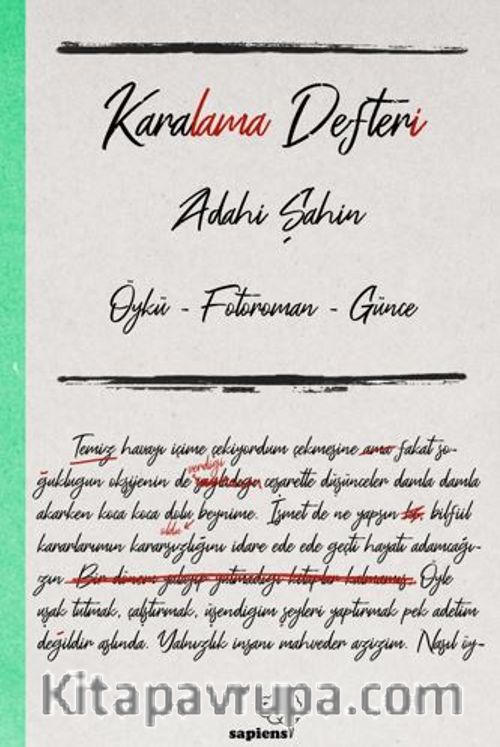 Karalama Defteri
Adahi Şahin
Öykü - Fotoroman - Günce
Temiz havayı içime çekiyordum çekmesine ama fakat so-
ğukluğun oksijenin de verdiği sağladığı cesaretle düşünceler damla damla
akarken koca koca dolu beynime. İsmet de ne yapsın bilfiil
oldu
kararlarımın kararsızlığını idare ede ede geçti hayatı adamcağı-
zın. Bir dönem yalayıp yutmadığı kitaplar kalmamış. Öyle
uşak tutmak, çalıştırmak, üşendiğim şeyleri yaptırmak pek adetim
değildir aslında. Yalnızlık insanı mahveder azizim. Nasıl öy-
Kitapavrupa.com
sapiens